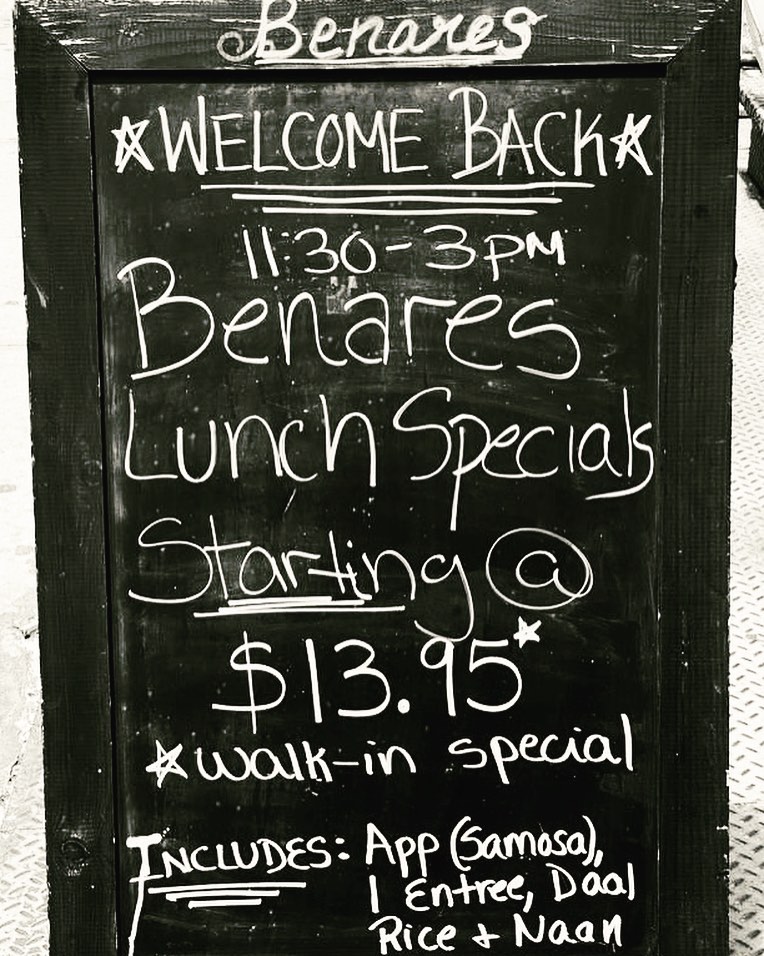 Benares
☆WELCOME BACK☆
11:30-3PM
Benares
Lunch Specials
Starting @
$13.95☆
☆walk-in special
INCLUDES: App (Samosa),
1 Entree, Daal
Rice + Naan